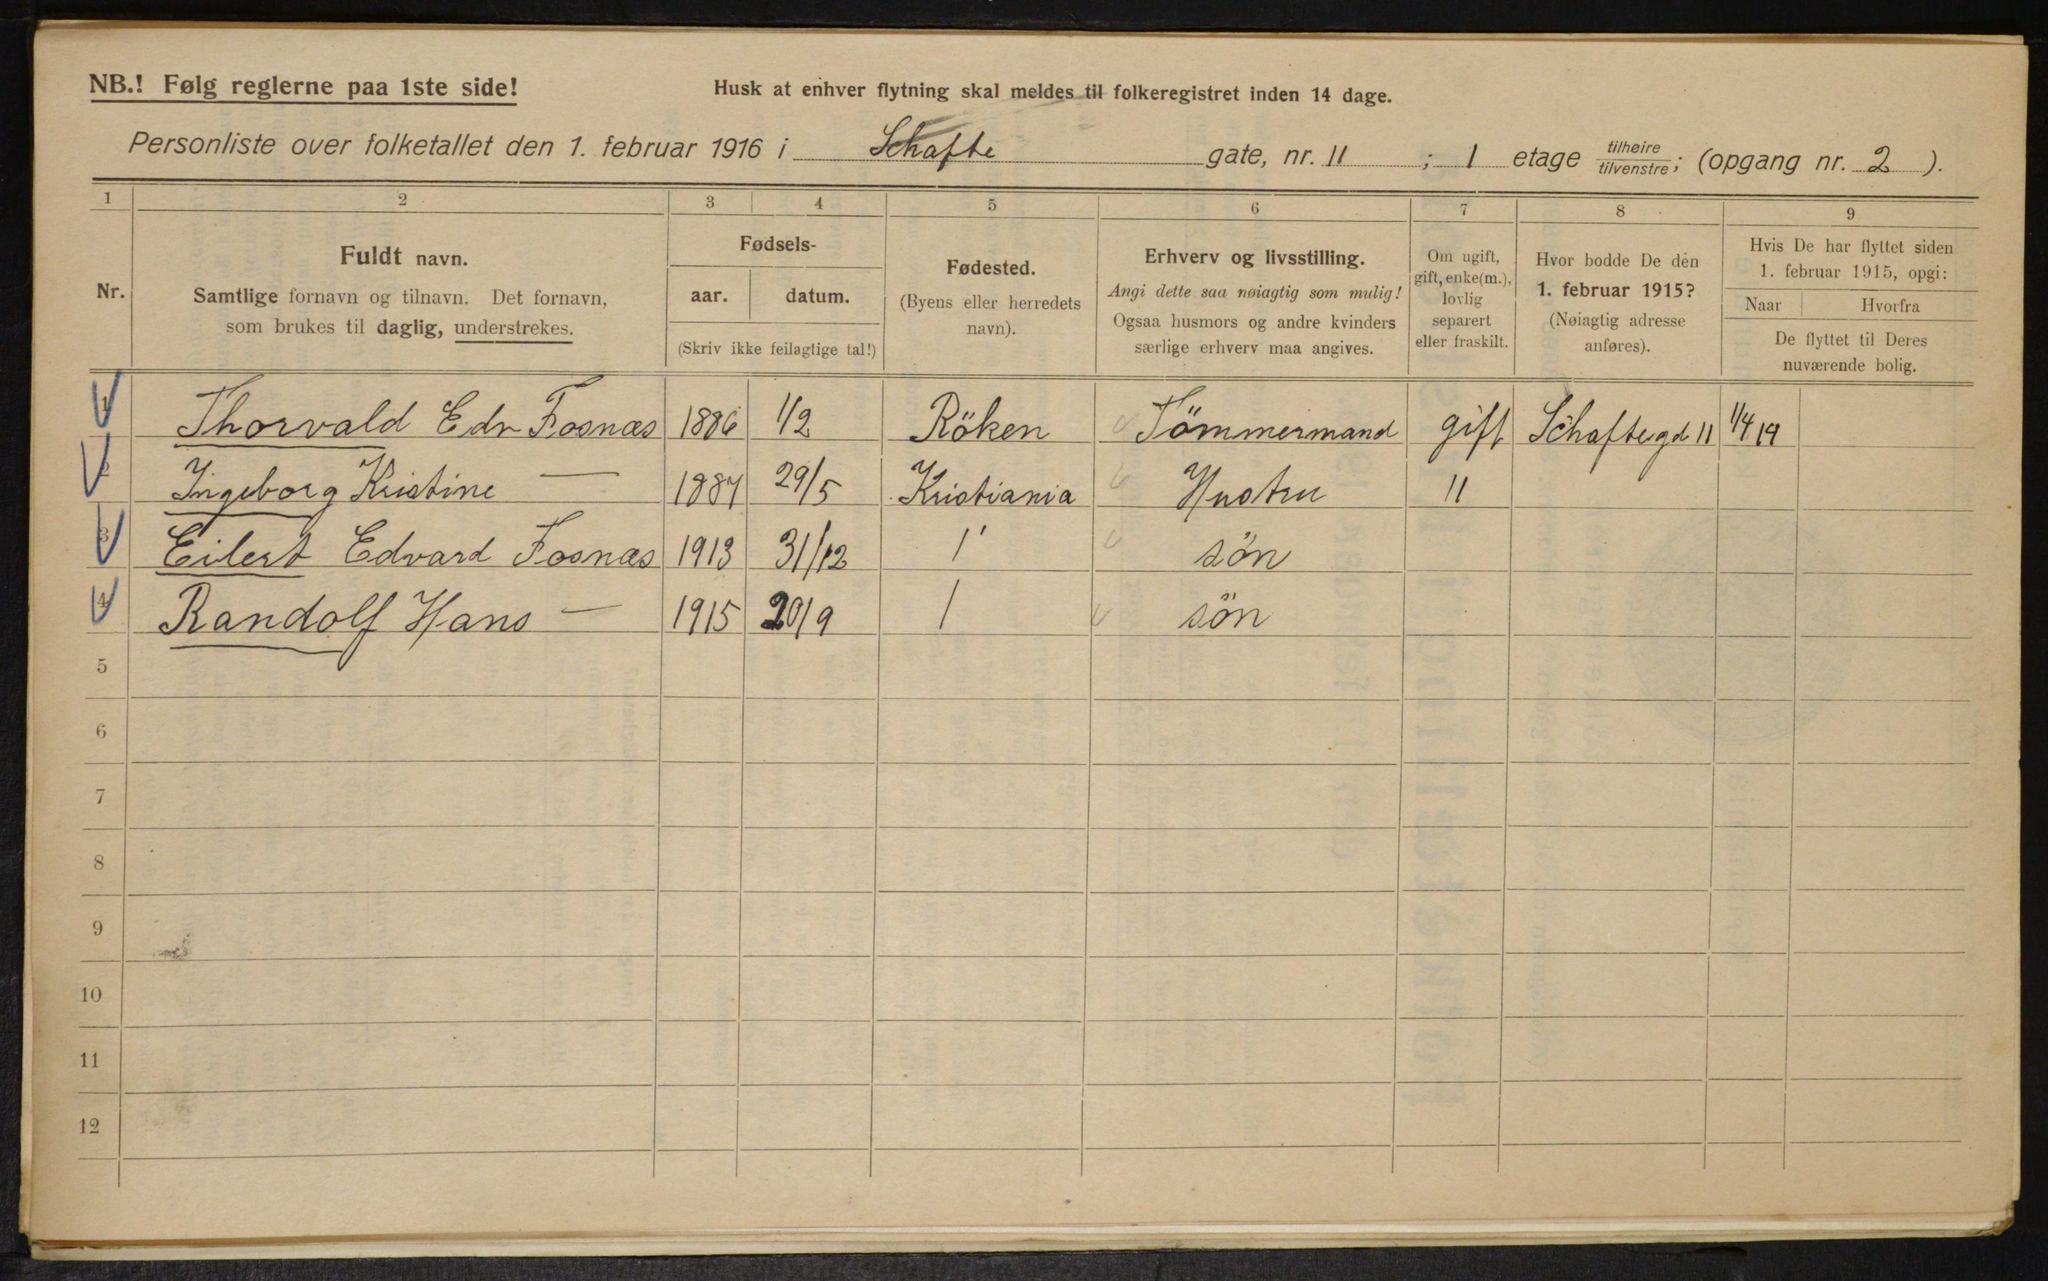 NB.! Følg reglerne paa 1ste side!
Husk at enhver flytning skal meldes til folkeregistret inden 14 dage.
Personliste over folketallet den 1. februar 1916 i Schafte gate, nr. 11 ; 1 etage tilhøire/tilvenstre; (opgang nr. 2 ).
1 2 3 4 5 6 7 8 9
Nr.
Fuldt navn.
Samtlige fornavn og tilnavn. Det fornavn,
som brukes til daglig, understrekes.
Fødsels-
aar. datum.
(Skriv ikke feilagtige tal!)
Fødested.
(Byens eller herredets
navn).
Erhverv og livsstilling.
Angi dette saa nøiagtig som mulig!
Ogsaa husmors og andre kvinders
særlige erhverv maa angives.
Om ugift,
gift, enke(m.),
lovlig
separert
eller fraskilt.
Hvor bodde De den
1. februar 1915?
(Nøiagtig adresse
anføres).
Hvis De har flyttet siden
1. februar 1915, opgi:
Naar Hvorfra
De flyttet til Deres
nuværende bolig.
1 Thorvald Edv Fosnæs 1886 1/2 Röken Tömmermand gift Schaftegd 11 1/4 14
2 Ingeborg Kristine — 1887 29/5 Kristiania Hustru "
3 Eilert Edvard Fosnæs 1913 31/12 " sön
4 Randolf Hans — 1915 20/9 " sön
5
6
7
8
9
10
11
12